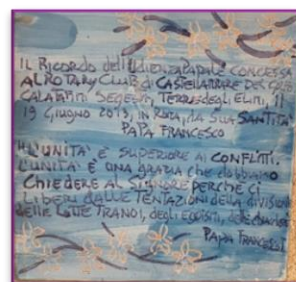 IL RICORDO dell'UDIENZA PAPALE CONCESSA
AL ROTARY CLUB di CASTELLAMMARE DEL GOLFO
CALATAFIMI SEGESTA, TERRE degli ELIMI, il
19 GIUGNO 2013, in ROMA, da SUA SANTITÀ
PAPA FRANCESCO
"L'UNITÀ È SUPERIORE AI CONFLITTI.
L'UNITÀ È UNA GRAZIA che dobbiamo
CHIEDERE AL SIGNORE PERCHÉ CI
LIBERI DALLE TENTAZIONI della DIVISIONE
delle LOTTE TRA NOI, degli EGOISMI, delle
PAPA FRANCESCO